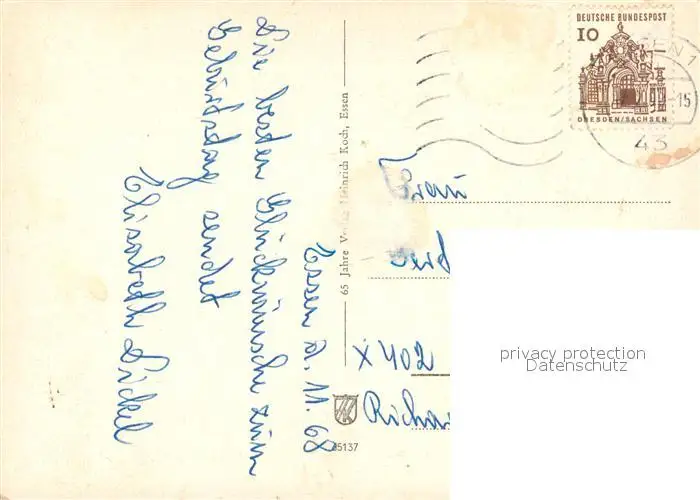 Essen d. 11.68
Die besten Glückwünsche zum
Geburtstag sendet
Elisabeth
65 Jahre Verlag Heinrich Koch, Essen
65137
DEUTSCHE BUNDESPOST
10
DRESDEN/SACHSEN
SEN 1
15
43
Frau
X 402
Richar
privacy protection
Datenschutz